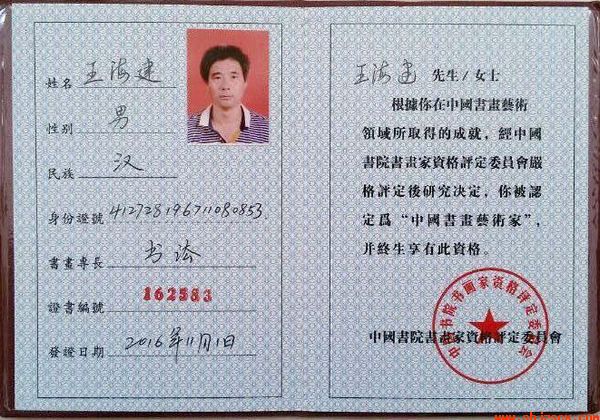 姓名 王海建
性别 男
民族 汉
身份證號 412728196711080853
書畫專長 书法
證書編號 162583
發證日期 2016年11月1日
王海建 先生/女士
根據你在中國書畫藝術
領域所取得的成就，經中國
書院書畫家資格評定委員會嚴
格評定後研究决定，你被認
定爲“中國書畫藝術家”，
并終生享有此資格。
中國書院書畫家資格評定委員會
中国书院书画家资格评定委员会